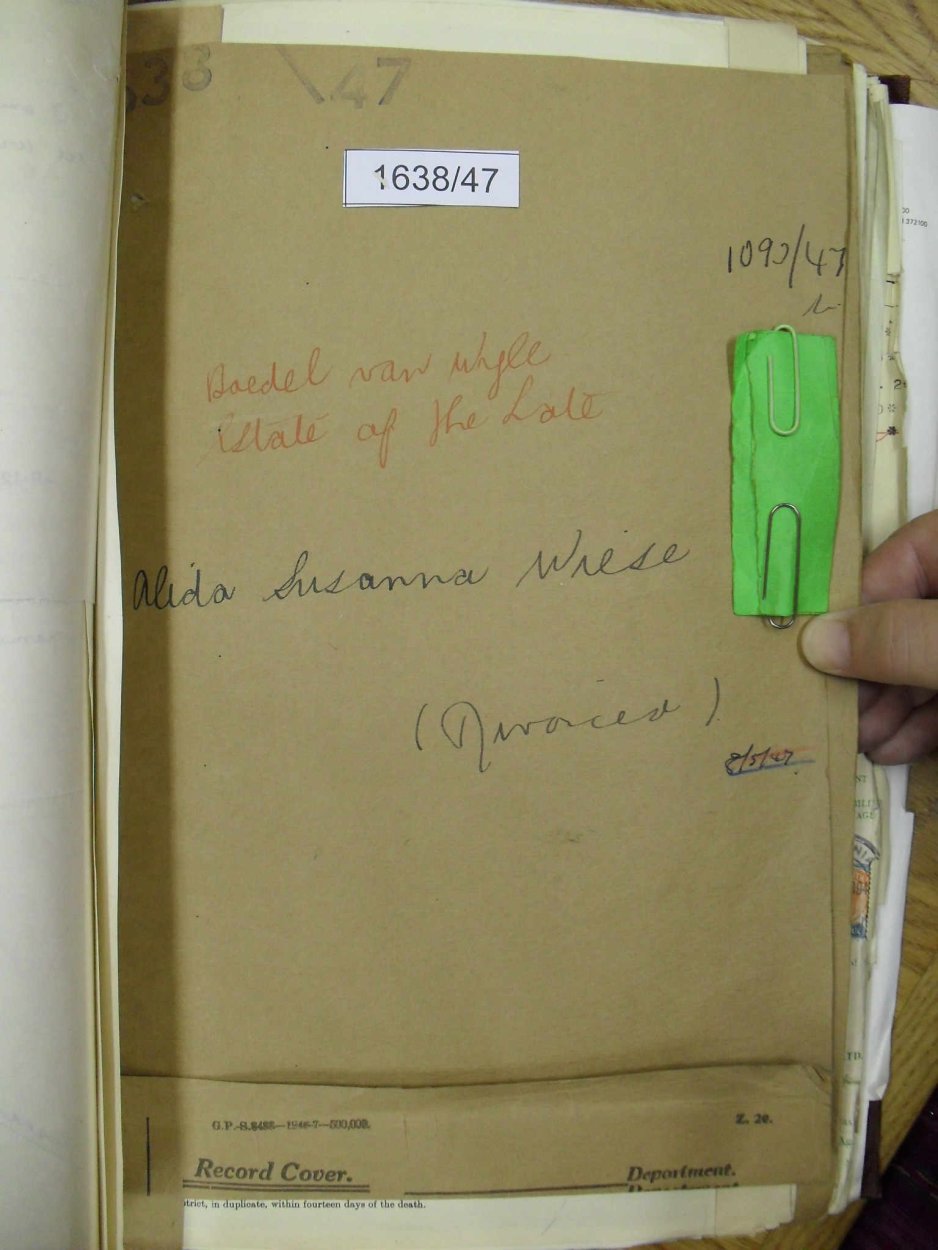 638 \ 47
1638/47
1093/47
Boedel van wyle
Estate of the Late
Alida Susanna Wiese
(Divorced)
8/5/47
G.P.-S.8488—1946-7—500,000.
Z. 20.
Record Cover.
Department.
strict, in duplicate, within fourteen days of the death.
372100
LTD.